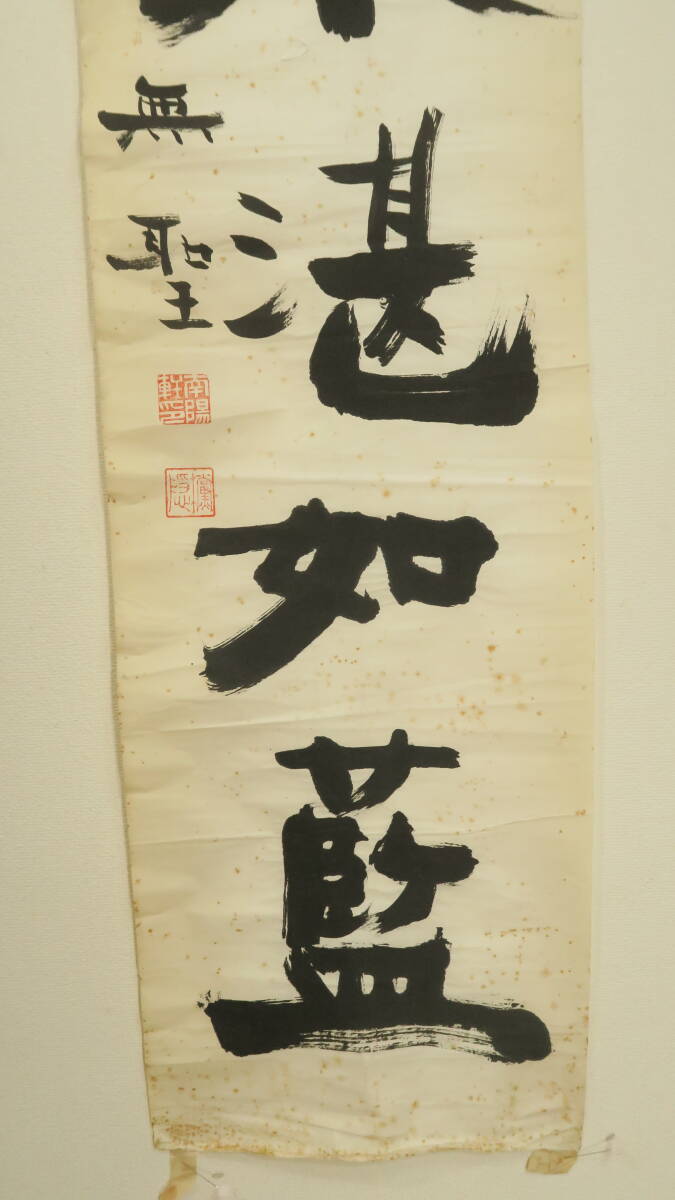 湛如藍
無聖
南陽
軒印